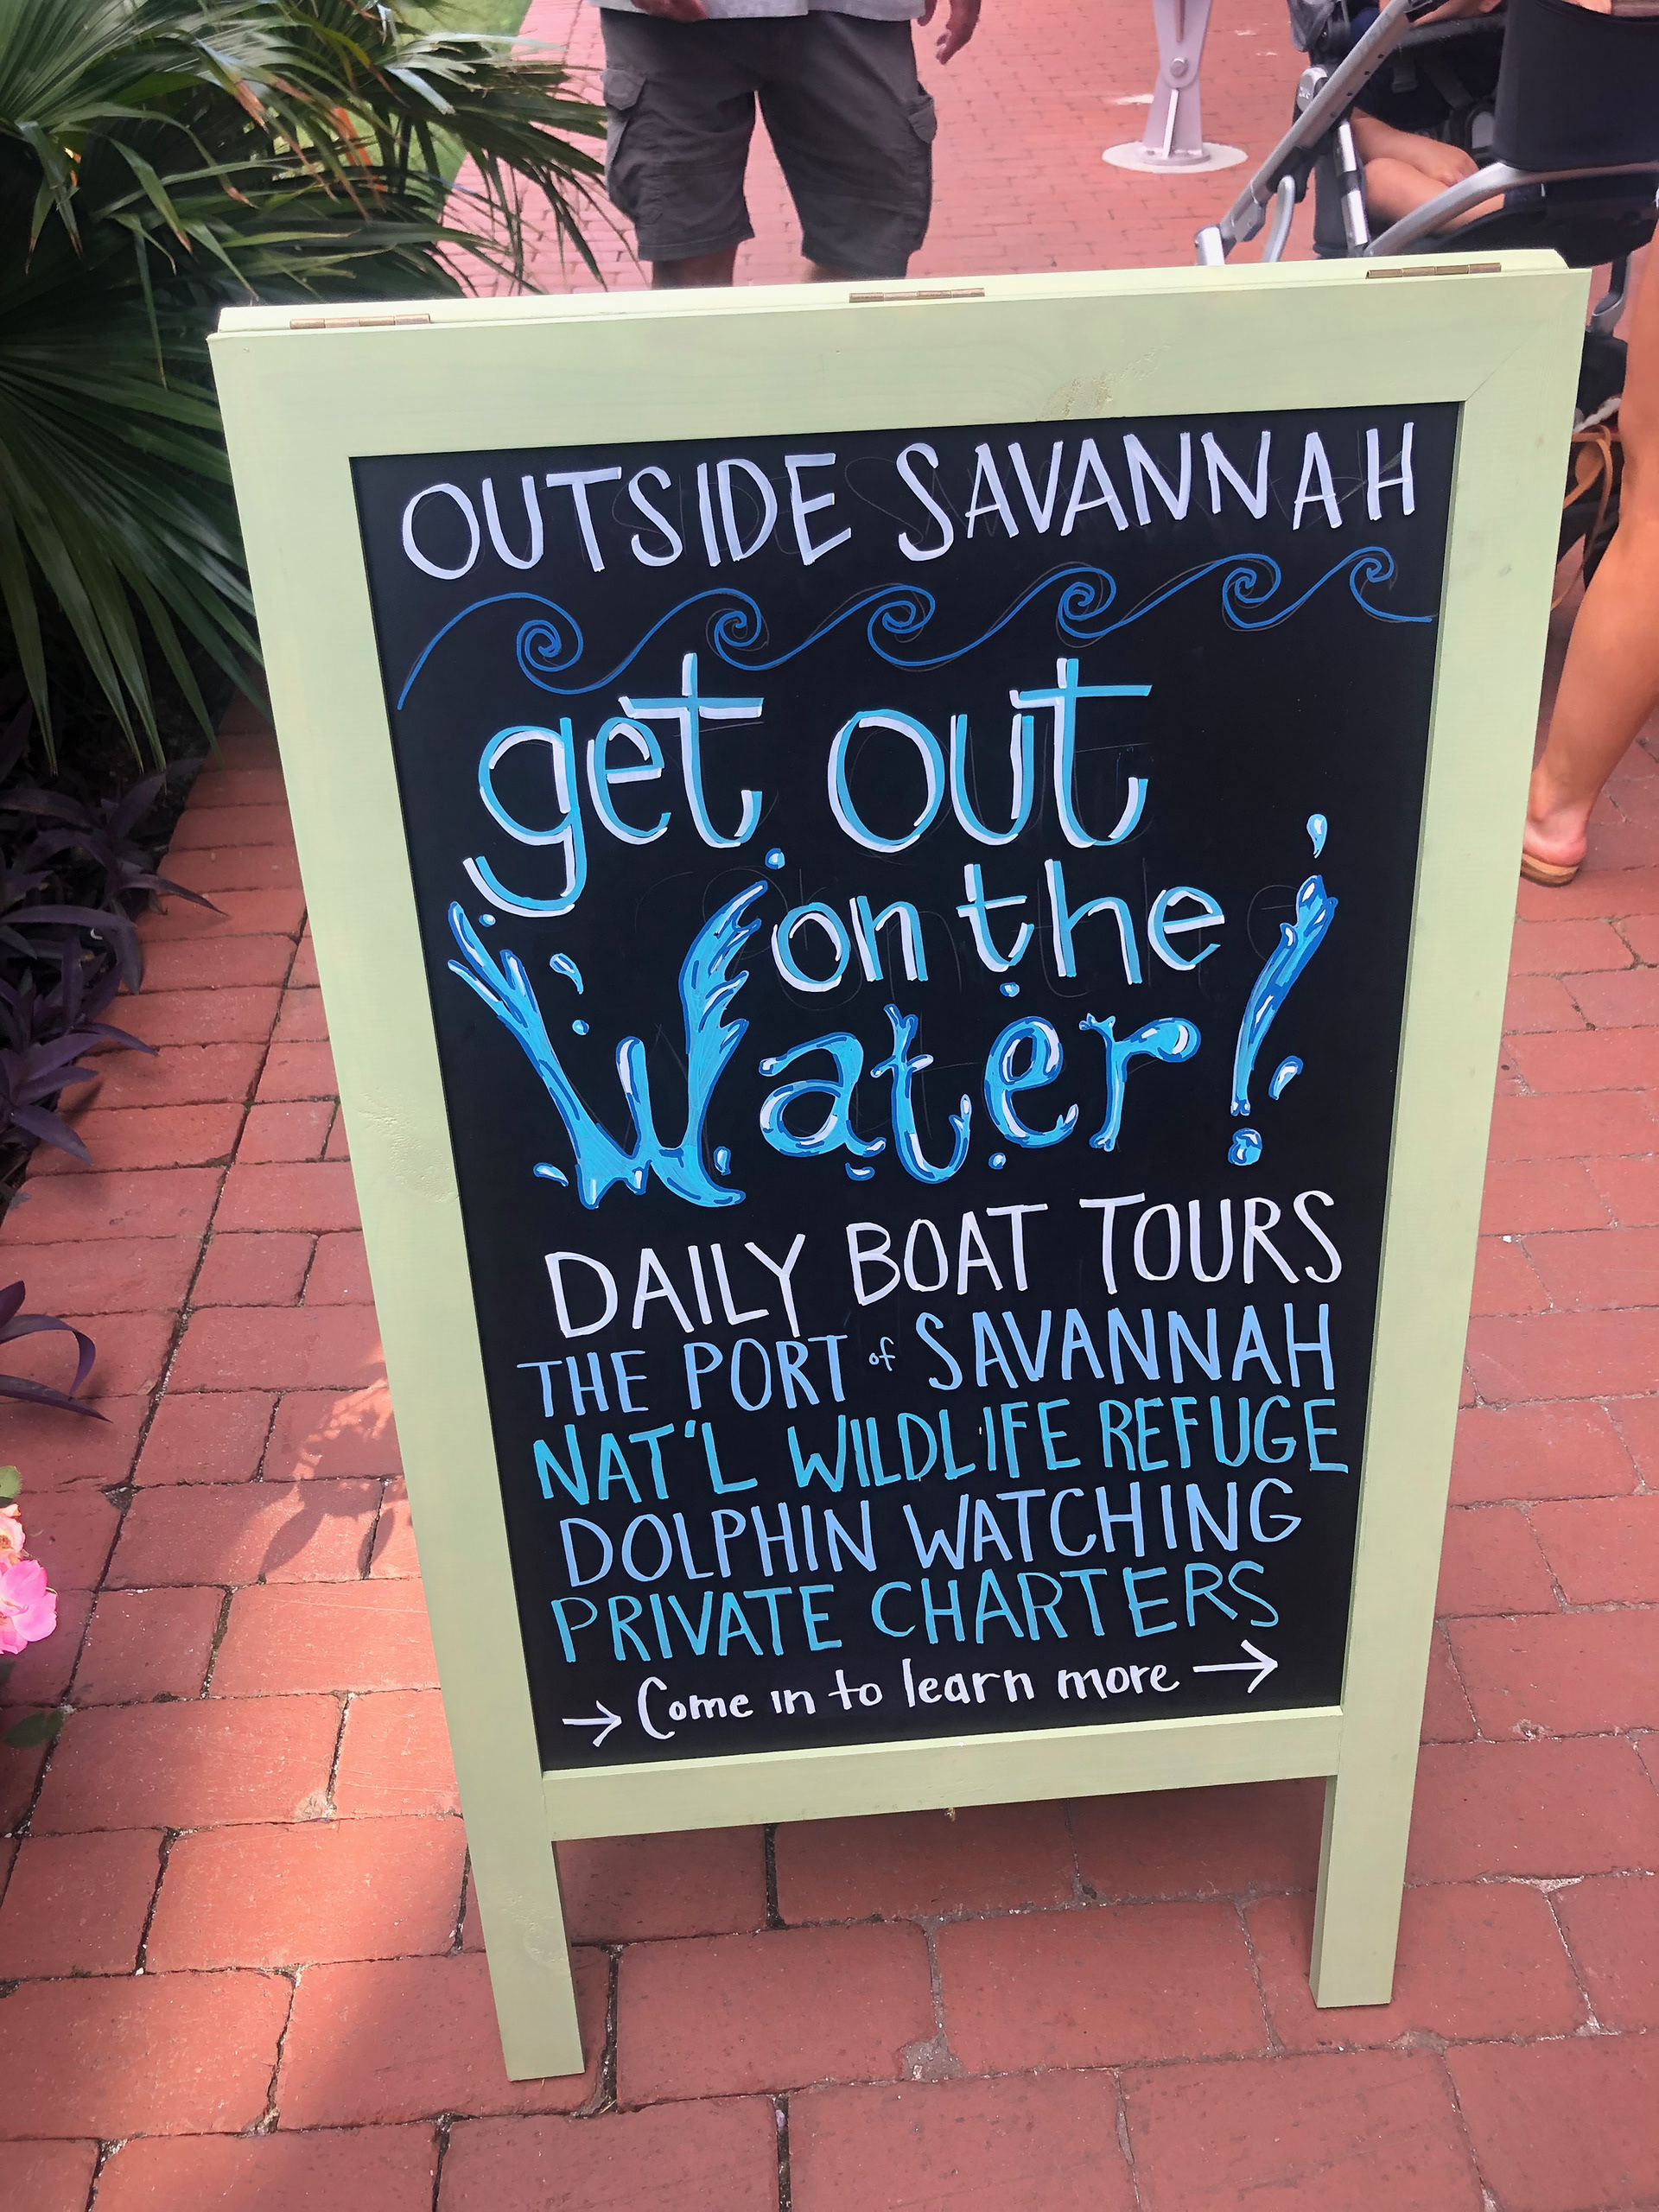 OUTSIDE SAVANNAH
get out
on the
Water!
DAILY BOAT TOURS
THE PORT of SAVANNAH
NAT'L WILDLIFE REFUGE
DOLPHIN WATCHING
PRIVATE CHARTERS
→ Come in to learn more →